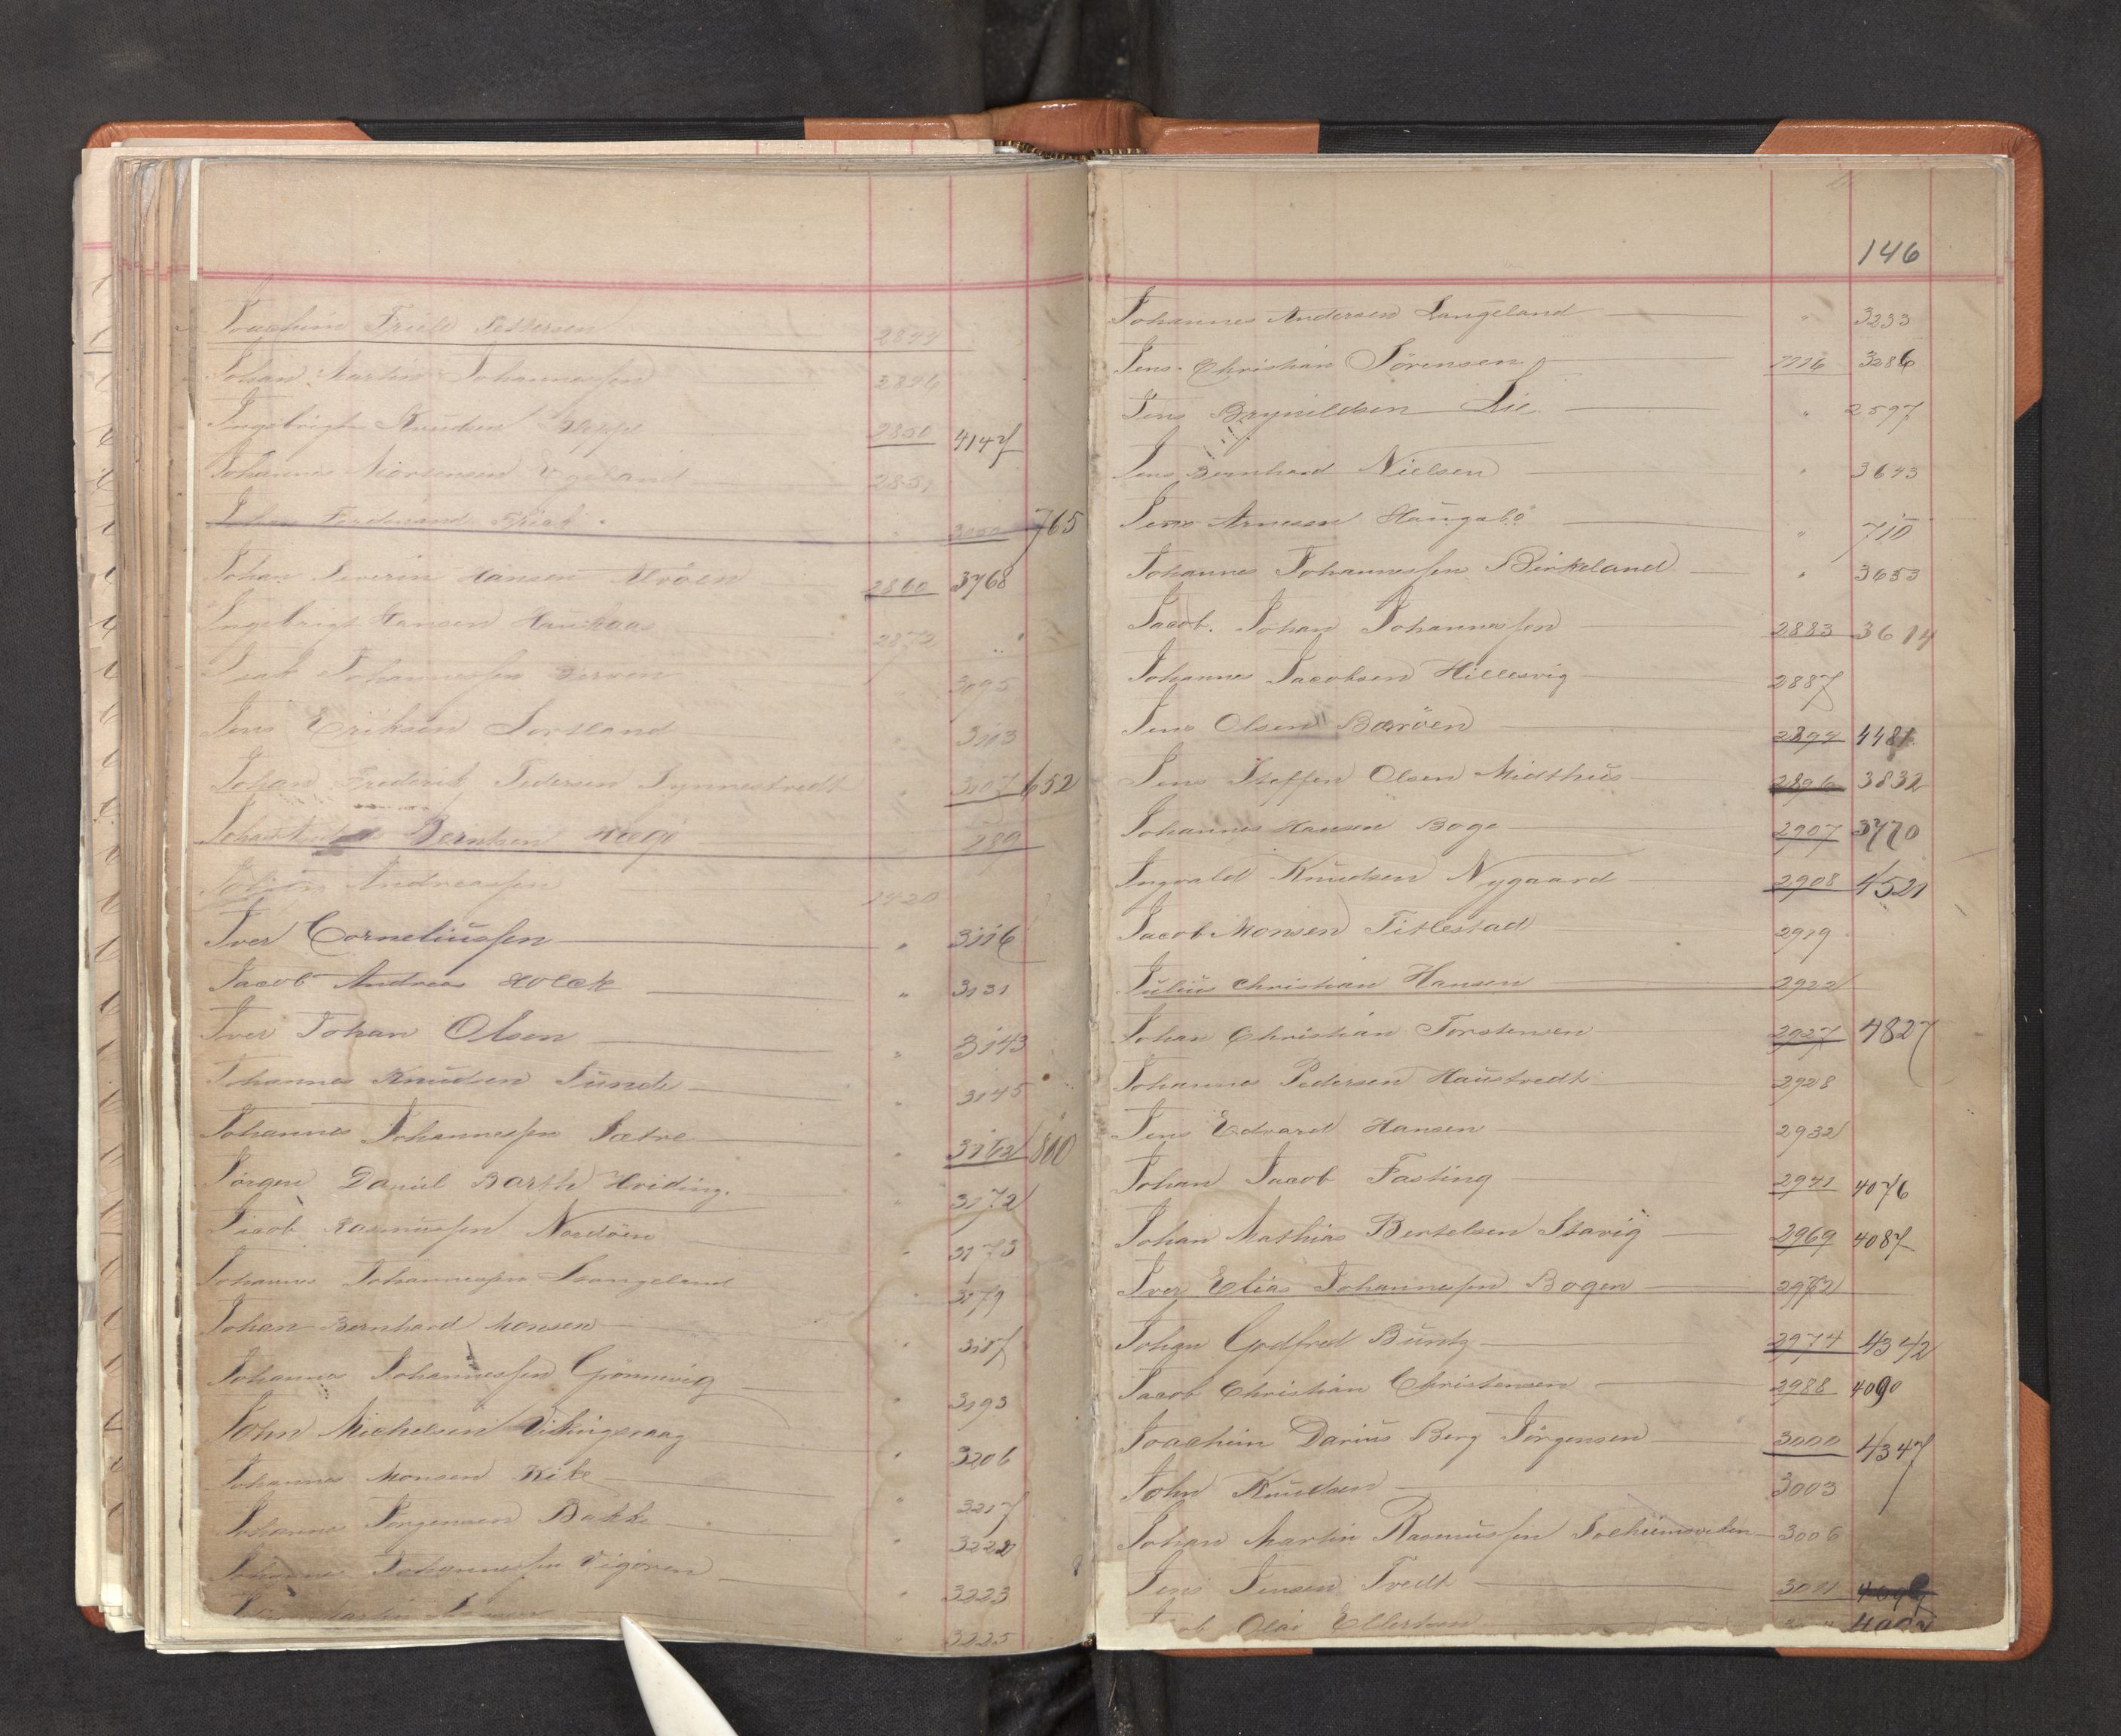 Joachim Friele Pettersen 2844
Johan Martin Johannessen 2846
Ingebrigt Knudsen 2850 4147
Johannes Mortensen Egeland 2851
Johan Ferdinand 3050 765
Johan Severin Hansen Alvöen 2860 3768
Ingebrigt Hansen Haukaas 2872
Isak Johannessen Berven 3095
Jens Eriksen Sortland " 3103
Johan Frederik Pedersen Tynnestvedt " 3107 652
Johan Berntsen Haagö 289
Andreassen 1420
Iver Corneliussen " 3116
Jacob Andreas Holck " 3131
Iver Johan Olsen " 3143
Johannes Knudsen Sunde " 3145
Johannes Johannessen Sætre " 3162 800
Jörgen Daniel Barth Hviding. " 3172
Jacob Rasmussen Nordöen " 3173
Johannes Johannessen Stangeland " 3179
Johan Bernhard Monsen " 3187
Johannes Johannessen Grönnevig " 3193
John Michelsen Vikingsraag " 3206
Johannes Monsen Kike " 3217
Johannes Jörgensen Bakke " 3222
Johannes Johannessen Vigören " 3223
Martin " 3225
146
Johannes Andersen Langeland " 3233
Jens Christian Sörensen 1116 3286
Jens Brynildsen Lie " 2597
Jens Bernhard Nielsen " 3643
Jens Arnesen Haugsbö " 710
Johannes Johannessen Birkeland " 3653
Jacob Johan Johannessen 2883 3614
Johannes Jacobsen Hillesvig 2887
Jens Olsen Baröen 2894 4481
Jens Steffen Olsen Midthus 2896 3832
Johannes Hansen Boge 2907 3770
Ingvald Knudsen Nygaard 2908 4521
Jacob Monsen Titlestad 2919
Julius Christian Hansen 2922
Johan Christian Torstensen 2927 4827
Johannes Pedersen Haustvedt 2928
Jens Edvard Hansen 2932
Johan Jacob Fasting 2941 4076
Johan Mathias Bertelsen Stavig 2969 4087
Iver Elias Johannessen Bogen 2972
Johan Godfred Buntz 2974 4342
Jacob Christian Christensen 2988 4090
Joachim Darius Berg Jörgensen 3000 4347
John Knudsen 3003
Johan Martin Rasmussen Solheimsviken 3006
Jens Jensen Tvedt 3011
Olai Ellertsen